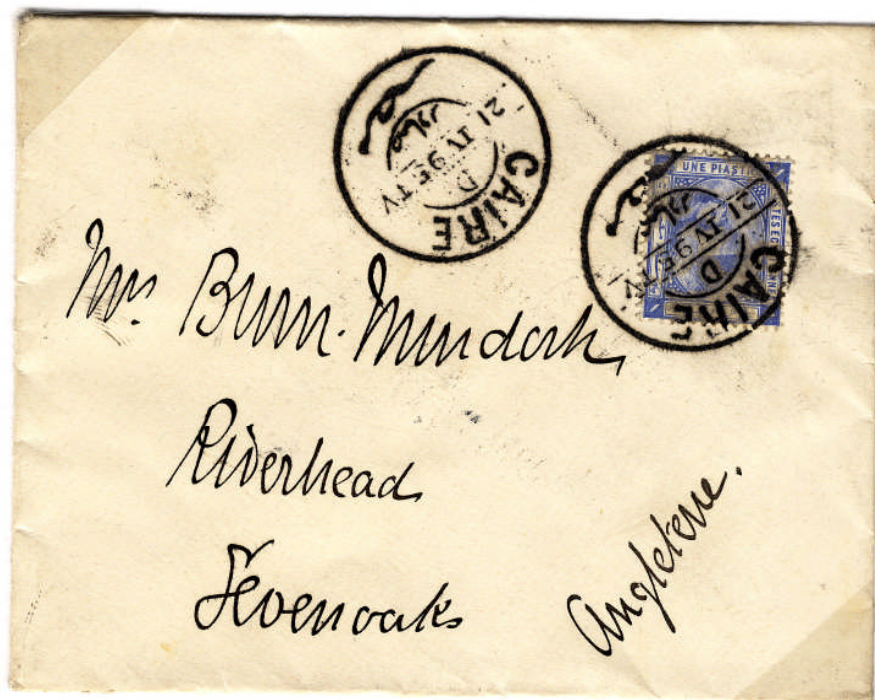 CAIRE
D
21 IV 95 T V
UNE PIASTRE
CAIRE
D
21 IV 95 T V
Mrs. Burn-Murdoch,
Riverhead
Sevenoaks
Angleterre.